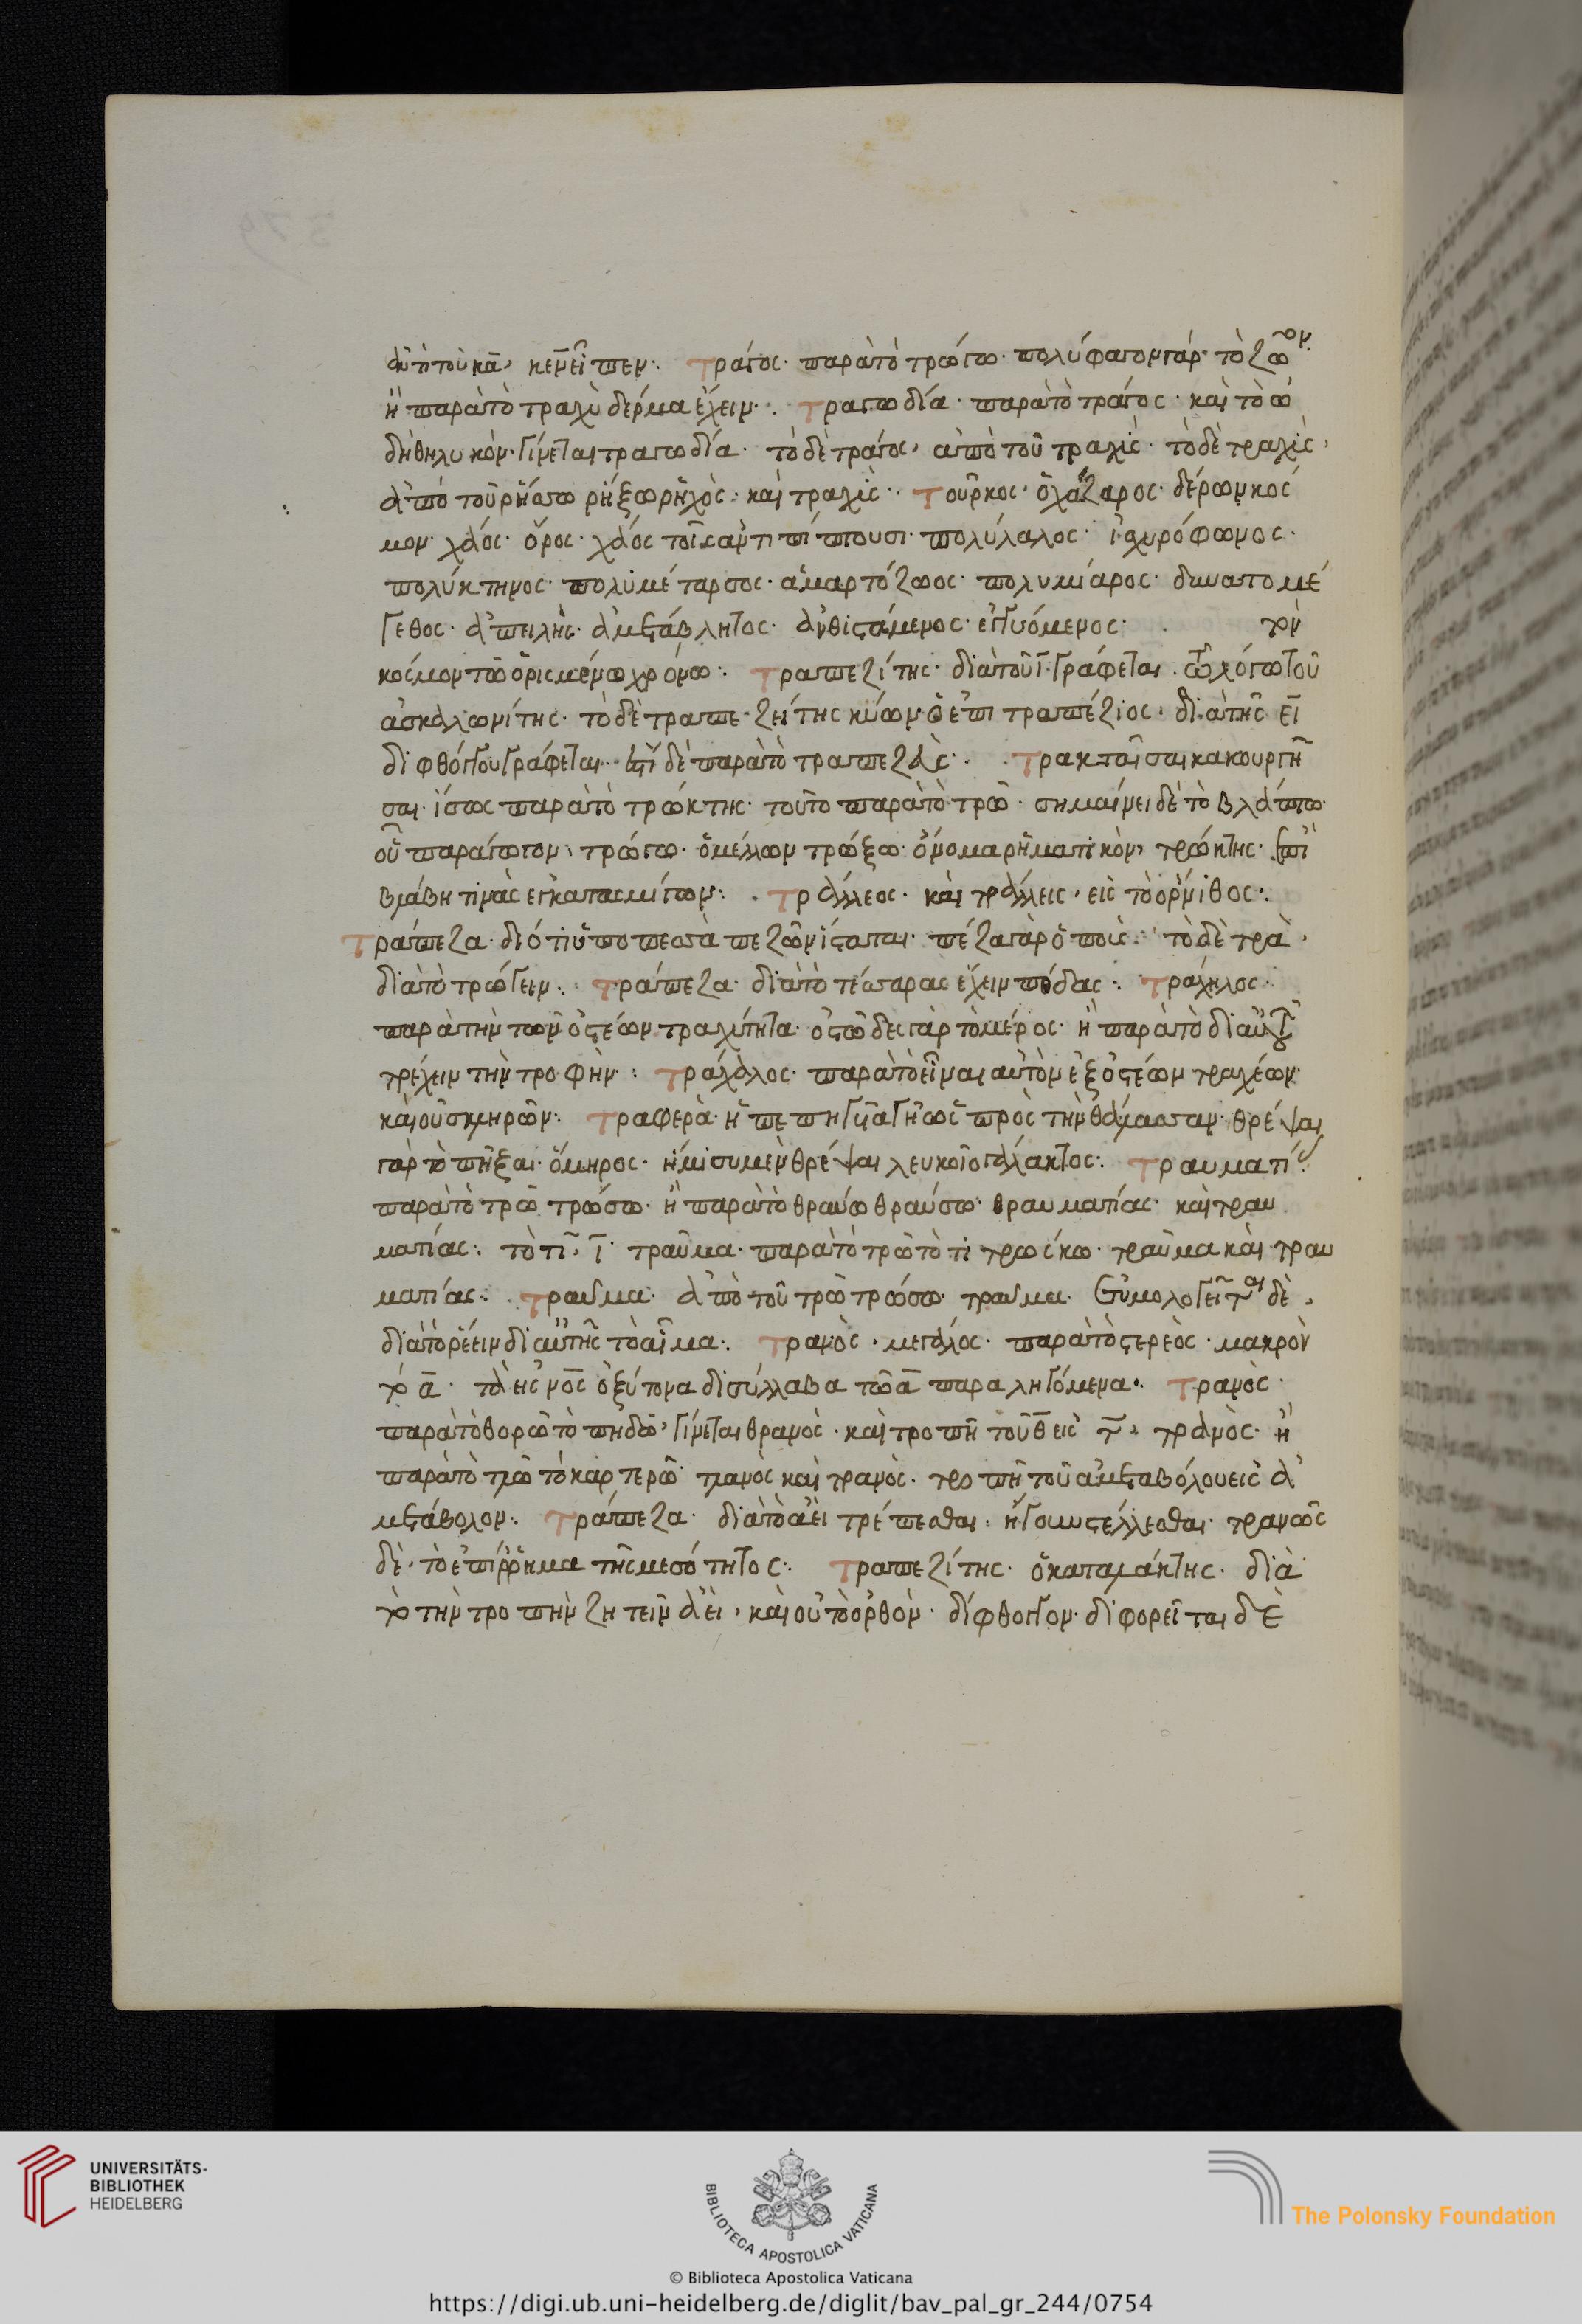 ἀντὶ τοῦ κα κενεῖπεν· τράγος· παρὰ τὸ τρώγω· πολύφαγον γὰρ τὸ ζῶον
ἢ παρὰ τὸ τραχὺ δέρμα ἔχειν· τραγωδία· παρὰ τὸ τράγος· καὶ τὸ ω
δὴ θηλυκὸν· γίνεται τραγωδία· τὸ δὲ τράγος, ἀπὸ τοῦ τραχὺς· τὸ δὲ τραχὺς,
ἀπὸ τοῦ ῥήσσω ῥήξω ῥηχὸς· καὶ τραχὺς· τοῦρκος· δέρων κος
μον· χάος· ὄρος· χάος πίπουσι· πολύλαλος· ἰσχυρόφωνος·
πολύκτηνος· πολυμέταρσος· ἁμαρτόζωος· πολυμίαρος· δυνατομέ
γεθος· ἀπειλὴς· ἀμετάβλητος· ἀνθιστάμενος· τὸν
κόσμον τῶ ὁρισμένω χρόνω· τραπεζίτης· διὰ τοῦ ῑ γράφεται·
ἀσκαλωνίτης· τὸ δὲ τραπεζήτης κύων ὁ ἐπιτραπέζιος· διὰ τῆς ει
διφθόγγου γράφεται· ἔστι δὲ παρὰ τὸ τραπεζὰς· τρακταῖσαι κακουργῆ
σαι· ἴσως παρὰ τὸ τρώκτης· τοῦτο παρὰ τὸ τρῶ· σημαίνει δὲ τὸ βλάπτω·
οὗ παράγωγον, τρώγω· ὁ μέλλων τρώξω· ὄνομα ῥηματικὸν, τρώκτης· ἐπὶ
βλάβη τινὰς τράλλεος· καὶ τράλλεις, εἰς τὸ ὄρνιθος·
Τράπεζα· διότι ὑπὸ πέζα γὰρ ὁ ποὺς· τὸ δὲ τρὰ,
διὰ τὸ τρώγειν· τράπεζα· διὰ τὸ τέσσαρας ἔχειν πόδας· τράχηλος·
παρὰ τὴν τῶν ὀστέων τραχύτητα· ὀστῶδες γὰρ τὸ μέρος· ἢ παρὰ τὸ δι αὐτοῦ
τρέχειν τὴν τροφὴν· τράχαλος· παρὰ τὸ εἶναι αὐτὸν ἐξ ὀστέων τραχέων
καὶ οὐ σκληρῶν· τραφερὰ· ἡ πεπηγυῖα γῆ ὡς πρὸς τὴν θάλασσαν· θρέψαι
γὰρ τὸ πῆξαι· ὅμηρος· ἥμισυ μὲν θρέψαι λευκοῖο γάλακτος· τραυματί
παρὰ τὸ τρῶ τρώσω· ἢ παρὰ τὸ θραύω θραύσω· θραυματίας· καὶ τραυ
ματίας· τὸ τι, ῑ· τραῦμα· παρὰ τὸ τρῶ τὸ τιτρώσκω· τραῦμα καὶ τραυ
ματίας· τραῦμα· ἀπὸ τοῦ τρῶ τρώσω· τραῦμα· ἐτυμολογεῖται δὲ,
διὰ τὸ ῥέειν δι αὐτῆς τὸ αἷμα· τρανὸς· μεγάλος· παρὰ τὸ στερεὸς· μακρὸν
τὸ ᾱ· τὰ εἰς νος ὀξύτονα δισύλλαβα τῶ ᾱ παραληγόμενα· τρανὸς·
παρὰ τὸ θορῶ τὸ πηδῶ, γίνεται θρανὸς· καὶ τροπῆ τοῦ θ εἰς τ, τρανὸς· ἢ
παρὰ τὸ τλῶ τὸ καρτερῶ τλανὸς καὶ τρανὸς· τροπῆ τοῦ ἀμεταβόλου εἰς ἀ
μετάβολον· τράπεζα· διὰ τὸ ἀεὶ τρέπεσθαι· ἤγουν στέλλεσθαι· τρανῶς
δὲ, τὸ ἐπίρρημα τῆς μεσότητος· τραπεζίτης· ὁ καταλάκτης· διὰ
τὸ τὴν τροπὴν ζητεῖν ἀεὶ, καὶ οὐ τὸ ὀρθὸν· δίφθογγον· διφορεῖται δὲ
UNIVERSITÄTS-
BIBLIOTHEK
HEIDELBERG
BIBLIOTECA APOSTOLICA VATICANA
The Polonsky Foundation
© Biblioteca Apostolica Vaticana
https://digi.ub.uni-heidelberg.de/diglit/bav_pal_gr_244/0754